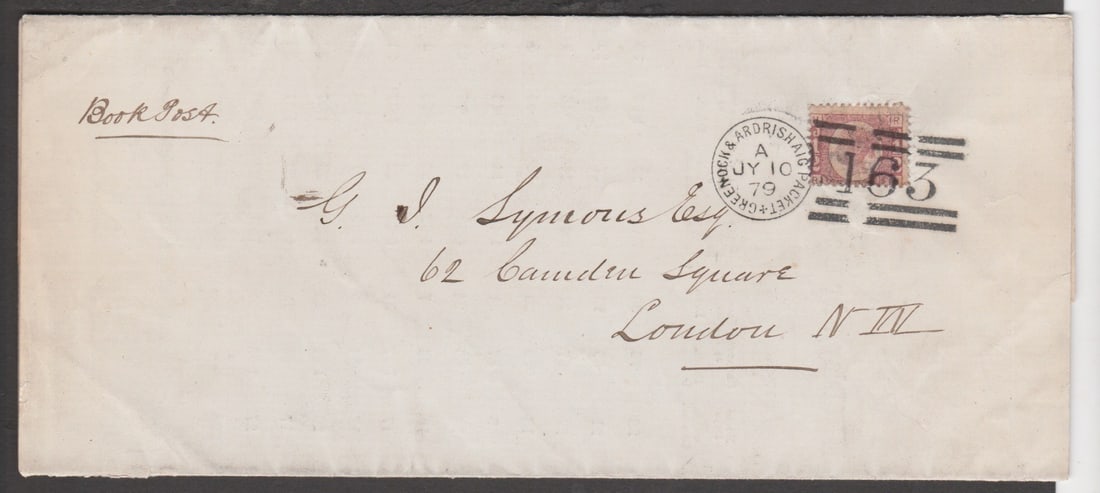 Book Post.
GREENOCK & ARDRISHAIG PACKET
A
JY 10
79
163
G. J. Symons Esq.
62 Camden Square
London N W